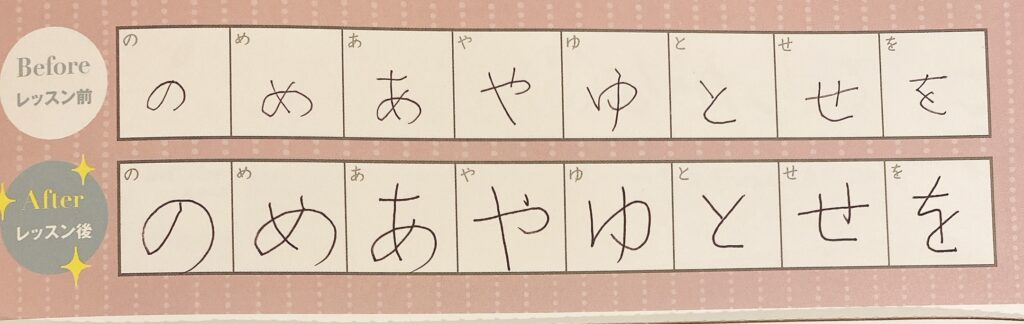 Before
レッスン前
の め あ や ゆ と せ を
の め あ や ゆ と せ を
After
レッスン後
の め あ や ゆ と せ を
の め あ や ゆ と せ を